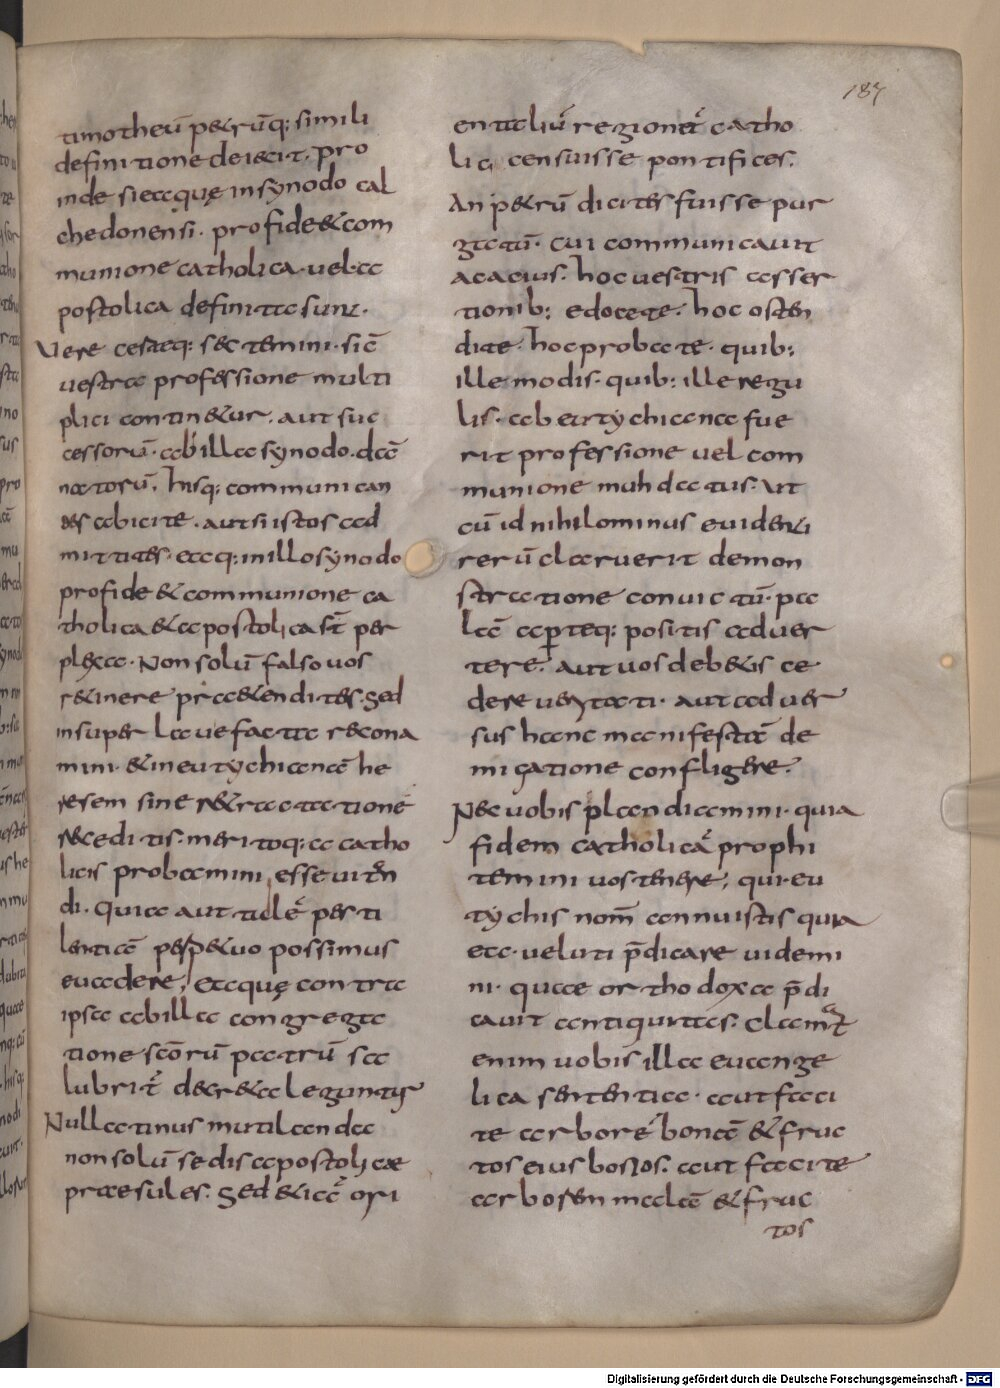 187
timotheū petrūq: simili
definitione deiecit. pro
inde si eaquę in synodo cal
chedonensi. pro fide & com
munione catholica. uel a
postolica definita sunt.
Vere cestaq: sectemini. sic̄
uestra professione multi
plici contin&ur. aut suc
cessorū. ab illa synodo. dā
natorū. hisq: communican
tes abicite. aut si istos ad
mittites. eaq: in illo synodo
pro fide & communione ca
tholica & apostolica sr̄ per
plexa. Non solū falso uos
r&inere pr&enditis. sed
insuper laue facta recona
mini. & in eutychianā he
resem sine r&ractatione
receditis. meritoq: a catho
licis probamini esse uitan
di. quia aut titulē per ti
lentiā perp&uo possimus
euadere; eaquę contra
ipsa ab illa congrega
tione scōrū patrū sa
lubrit̄ decr&a leguntur
Nulla tinus mutilanda
non solū sedis apostolicae
praesules. sed & iā ori
entaliū regionū catho
licę censuisse pontifices.
An p&rū dicites fuisse pur
gatū. cui communicauit
acacius. hoc uestris asser
tionib: edocete. hoc osten
dite. hoc probate. quib:
ille modis. quib: ille regu
lis. ab eutychiana fue
rit professione uel com
munione mundatus. Ut
cū id nihilominus euidenti
rerū claruerit demon
stratione conuictū. pa
lā aperteq: positis aduer
tere. aut uos deb&is ce
dere ueritati. aut aduer
sus hanc manifestā de
migatione confligere.
Nec uobis plandamini. quia
fidem catholicā prophi
temini uos tenere; qui eu
tychis nom̄ annuistis quia
ea. ueluti p̄dicare uidemi
ni. quae orthodoxa p̄di
cauit antiquitas. Clamat
enim uobis illa euange
lica sententia. aut faci
te arborē bonā & fruc
tos eius bonos. aut facite
arborem malā & fruc
tos
Digitalisierung gefördert durch die Deutsche Forschungsgemeinschaft - DFG